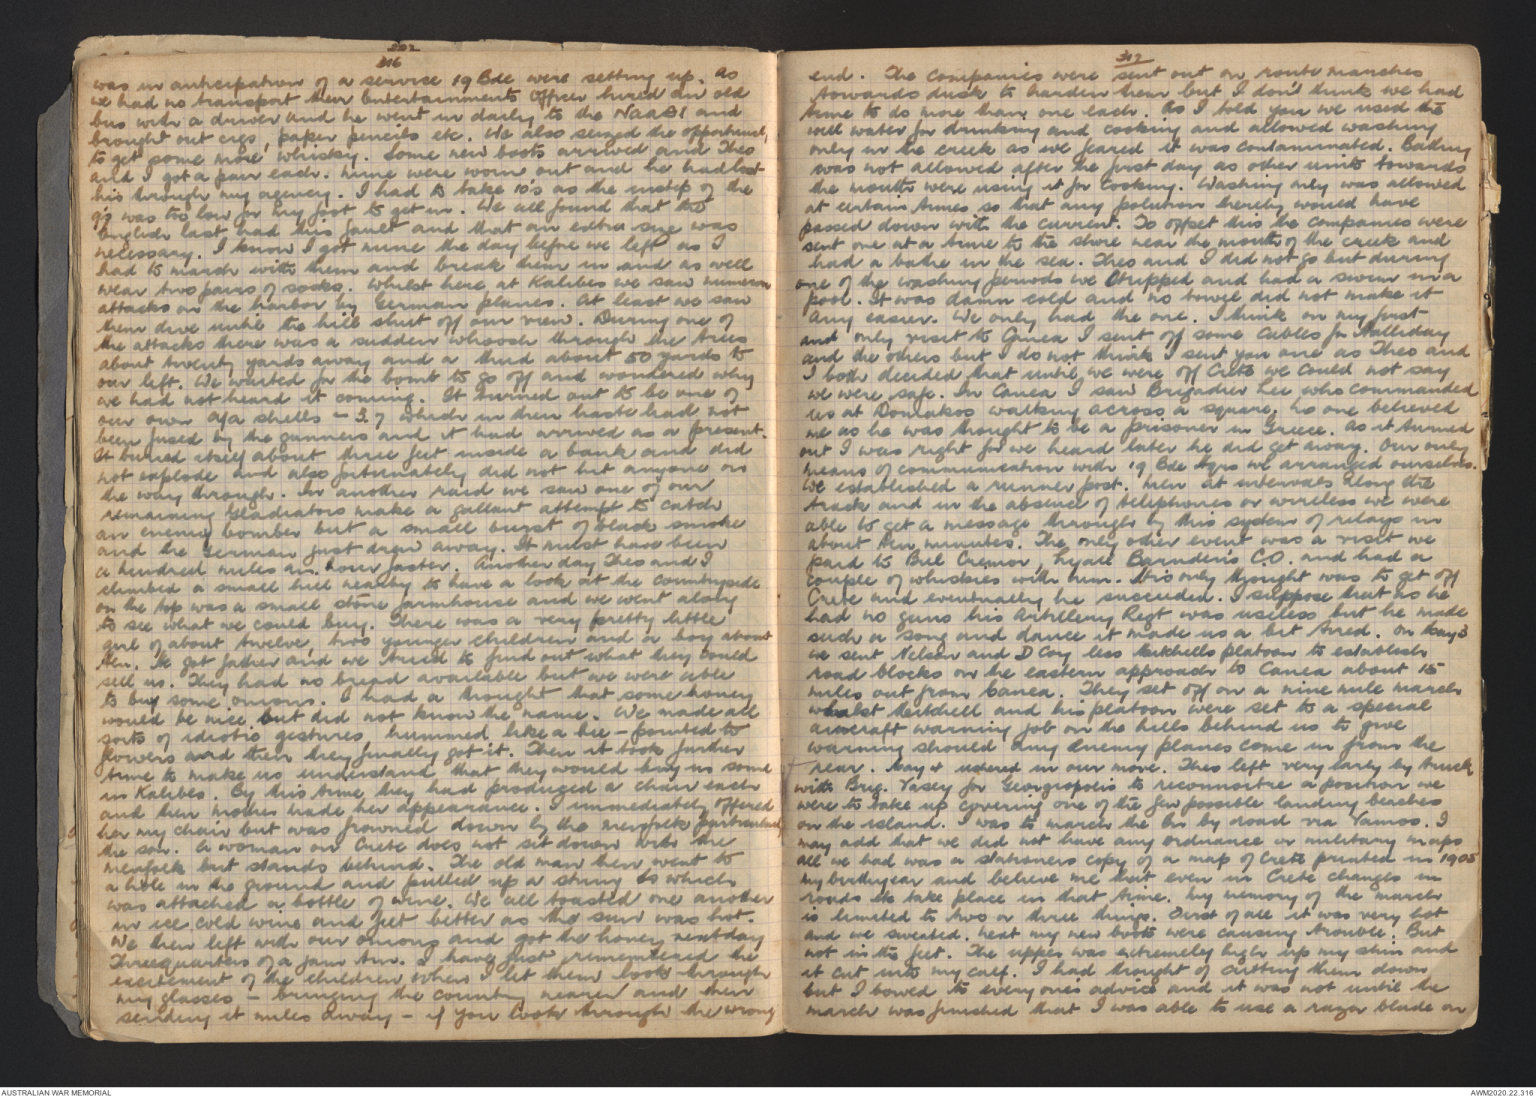 302
316
was in anticipation of a service 19 Bde were setting up. As
we had no transport then Entertainments Officer hired an old
bus with a driver and he went in daily to the NAAFI and
brought out cigs, paper pencils etc. We also seized the opportunity
to get some more whisky. Some new boots arrived and Theo
and I got a pair each. Mine were worn out and he had lost
his through my agency. I had to take 10's as the instep of the
9's was too low for my foot to get in. We all found that the
English last had this fault and that an extra size was
necessary. I know I got mine the day before we left as I
had to march with them and break them in and as well
wear two pairs of socks. Whilst here at Kalibes we saw numerous
attacks on the harbor by German planes. At least we saw
them dive until the hill shut off our view. During one of
the attacks there was a sudden whoosh through the trees
about twenty yards away and a thud about 50 yards to
our left. We waited for the bomb to go off and wondered why
we had not heard it coming. It turned out to be one of
our own A/A shells - 3.7 which in their haste had not
been fused by the gunners and it had arrived as a present.
It buried itself about three feet inside a bank and did
not explode and also fortunately did not hit anyone on
the way through. In another raid we saw one of our
remaining Gladiators make a gallant attempt to catch
an enemy bomber but a small burst of black smoke
and the German just drew away. It must have been
a hundred miles an hour faster. Another day Theo and I
climbed a small hill nearby to have a look at the countryside
on the top was a small stone farmhouse and we went along
to see what we could buy. There was a very pretty little
girl of about twelve, two younger children and a boy about
ten. He got father and we tried to find out what they could
sell us. They had no bread available but we were able
to buy some onions. I had a thought that some honey
would be nice but did not know the name. We made all
sorts of idiotic gestures hummed like a bee - pointed to
flowers and then they finally got it. Then it took further
time to make us understand that they would buy us some
in Kalibes. By this time they had produced a chair each
and then mother made her appearance. I immediately offered
her my chair but was frowned down by the menfolk particularly
the son. A woman on Crete does not sit down with the
menfolk but stands behind. The old man then went to
a hole in the ground and pulled up a string to which
was attached a bottle of wine. We all toasted one another
in ice cold wine and felt better as the sun was hot.
We then left with our onions and got the honey next day
Threequarters of a jam tin. I have just remembered the
excitement of the children when I let them look through
my glasses - bringing the country nearer and then
sending it miles away - if you look through the wrong
317
end. The companies were sent out on route marches
towards dusk to harden them but I don't think we had
time to do more than one each. As I told you we used the
well water for drinking and cooking and allowed washing
only in the creek as we feared it was contaminated. Bathing
was not allowed after the first day as other units towards
the mouth were using it for cooking. Washing only was allowed
at certain times so that any polution thereby would have
passed down with the current. To offset this the companies were
sent one at a time to the shore near the mouth of the creek and
had a bathe in the sea. Theo and I did not go but during
one of the washing periods we stripped and had a swim in a
pool. It was damn cold and no towel did not make it
any easier. We only had the one. I think on my first
and only visit to Canea I sent off some cables for Halliday
and the others but I do not think I sent you one as Theo and
I both decided that until we were off Crete we could not say
we were safe. In Canea I saw Brigadier Lee who commanded
us at Domokos walking across a square, no one believed
me as he was thought to be a prisoner in Greece. As it turned
out I was right for we heard later he did get away. Our only
means of communication with 19 Bde Hqrs we arranged ourselves.
We established a runner post. Men at intervals along the
track and in the absence of telephones or wireless we were
able to get a message through by this system of relays in
about ten minutes. The only other event was a visit we
paid to Bul Cremor, Lyall C.O. and had a
couple of whiskies with him. His only thought was to get off
Crete and eventually he succeeded. I suppose that as he
had no guns his Artillery Regt was useless but he made
such a song and dance it made us a bit tired. On May 3
we sent Nelson and D Coy less Mitchells platoon to establish
road blocks on the eastern approach to Canea about 15
miles out from Canea. They set off on a nine mile march
whilst Mitchell and his platoon were set to a special
aircraft warning job on the hills behind us to give
warning should any enemy planes come in from the
rear. May 4 ushered in our move. Theo left very early by truck
with Brig. Vasey for Georgiopolis to reconnoitre a position we
were to take up covering one of the few possible landing beaches
on the island. I was to march the Bn by road via Vamos. I
may add that we did not have any ordnance or military maps
all we had was a stationers copy of a map of Crete printed in 1905
my birthyear and believe me that even in Crete changes in
roads etc take place in that time. My memory of the march
is limited to two or three things. First of all it was very hot
and we sweated. Next my new boots were causing trouble. But
not in the feet. The upper was extremely high up my shin and
it cut into my calf. I had thought of cutting them down
but I bowed to everyones advice and it was not until the
march was finished that I was able to use a razor blade on
AUSTRALIAN WAR MEMORIAL
AWM2020.22.316